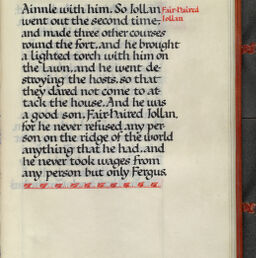 Ainnle with him. So Iollan
Fair-haired
Iollan.
went out the second time,
and made three other courses
round the fort, and he brought
a lighted torch with him on
the Lawn, and he went de-
stroying the hosts, so that
they dared not come to at-
tack the house. And he was
a good son, Fair-haired Iollan,
for he never refused any per-
son on the ridge of the world
anything that he had, and
he never took wages from
any person but only Fergus.